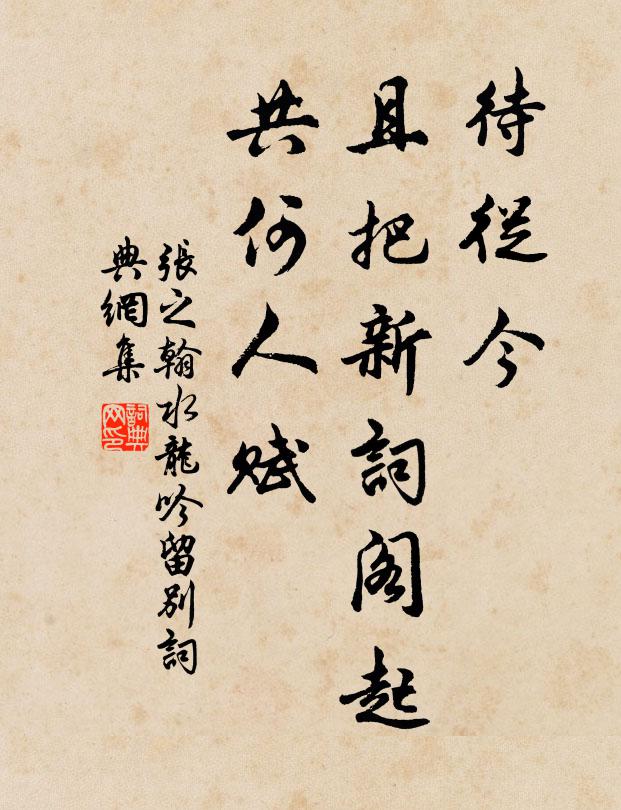 待從今
且把新詞阁起
共何人赋
張之翰水龍吟留別詞
典網集
詞典网印